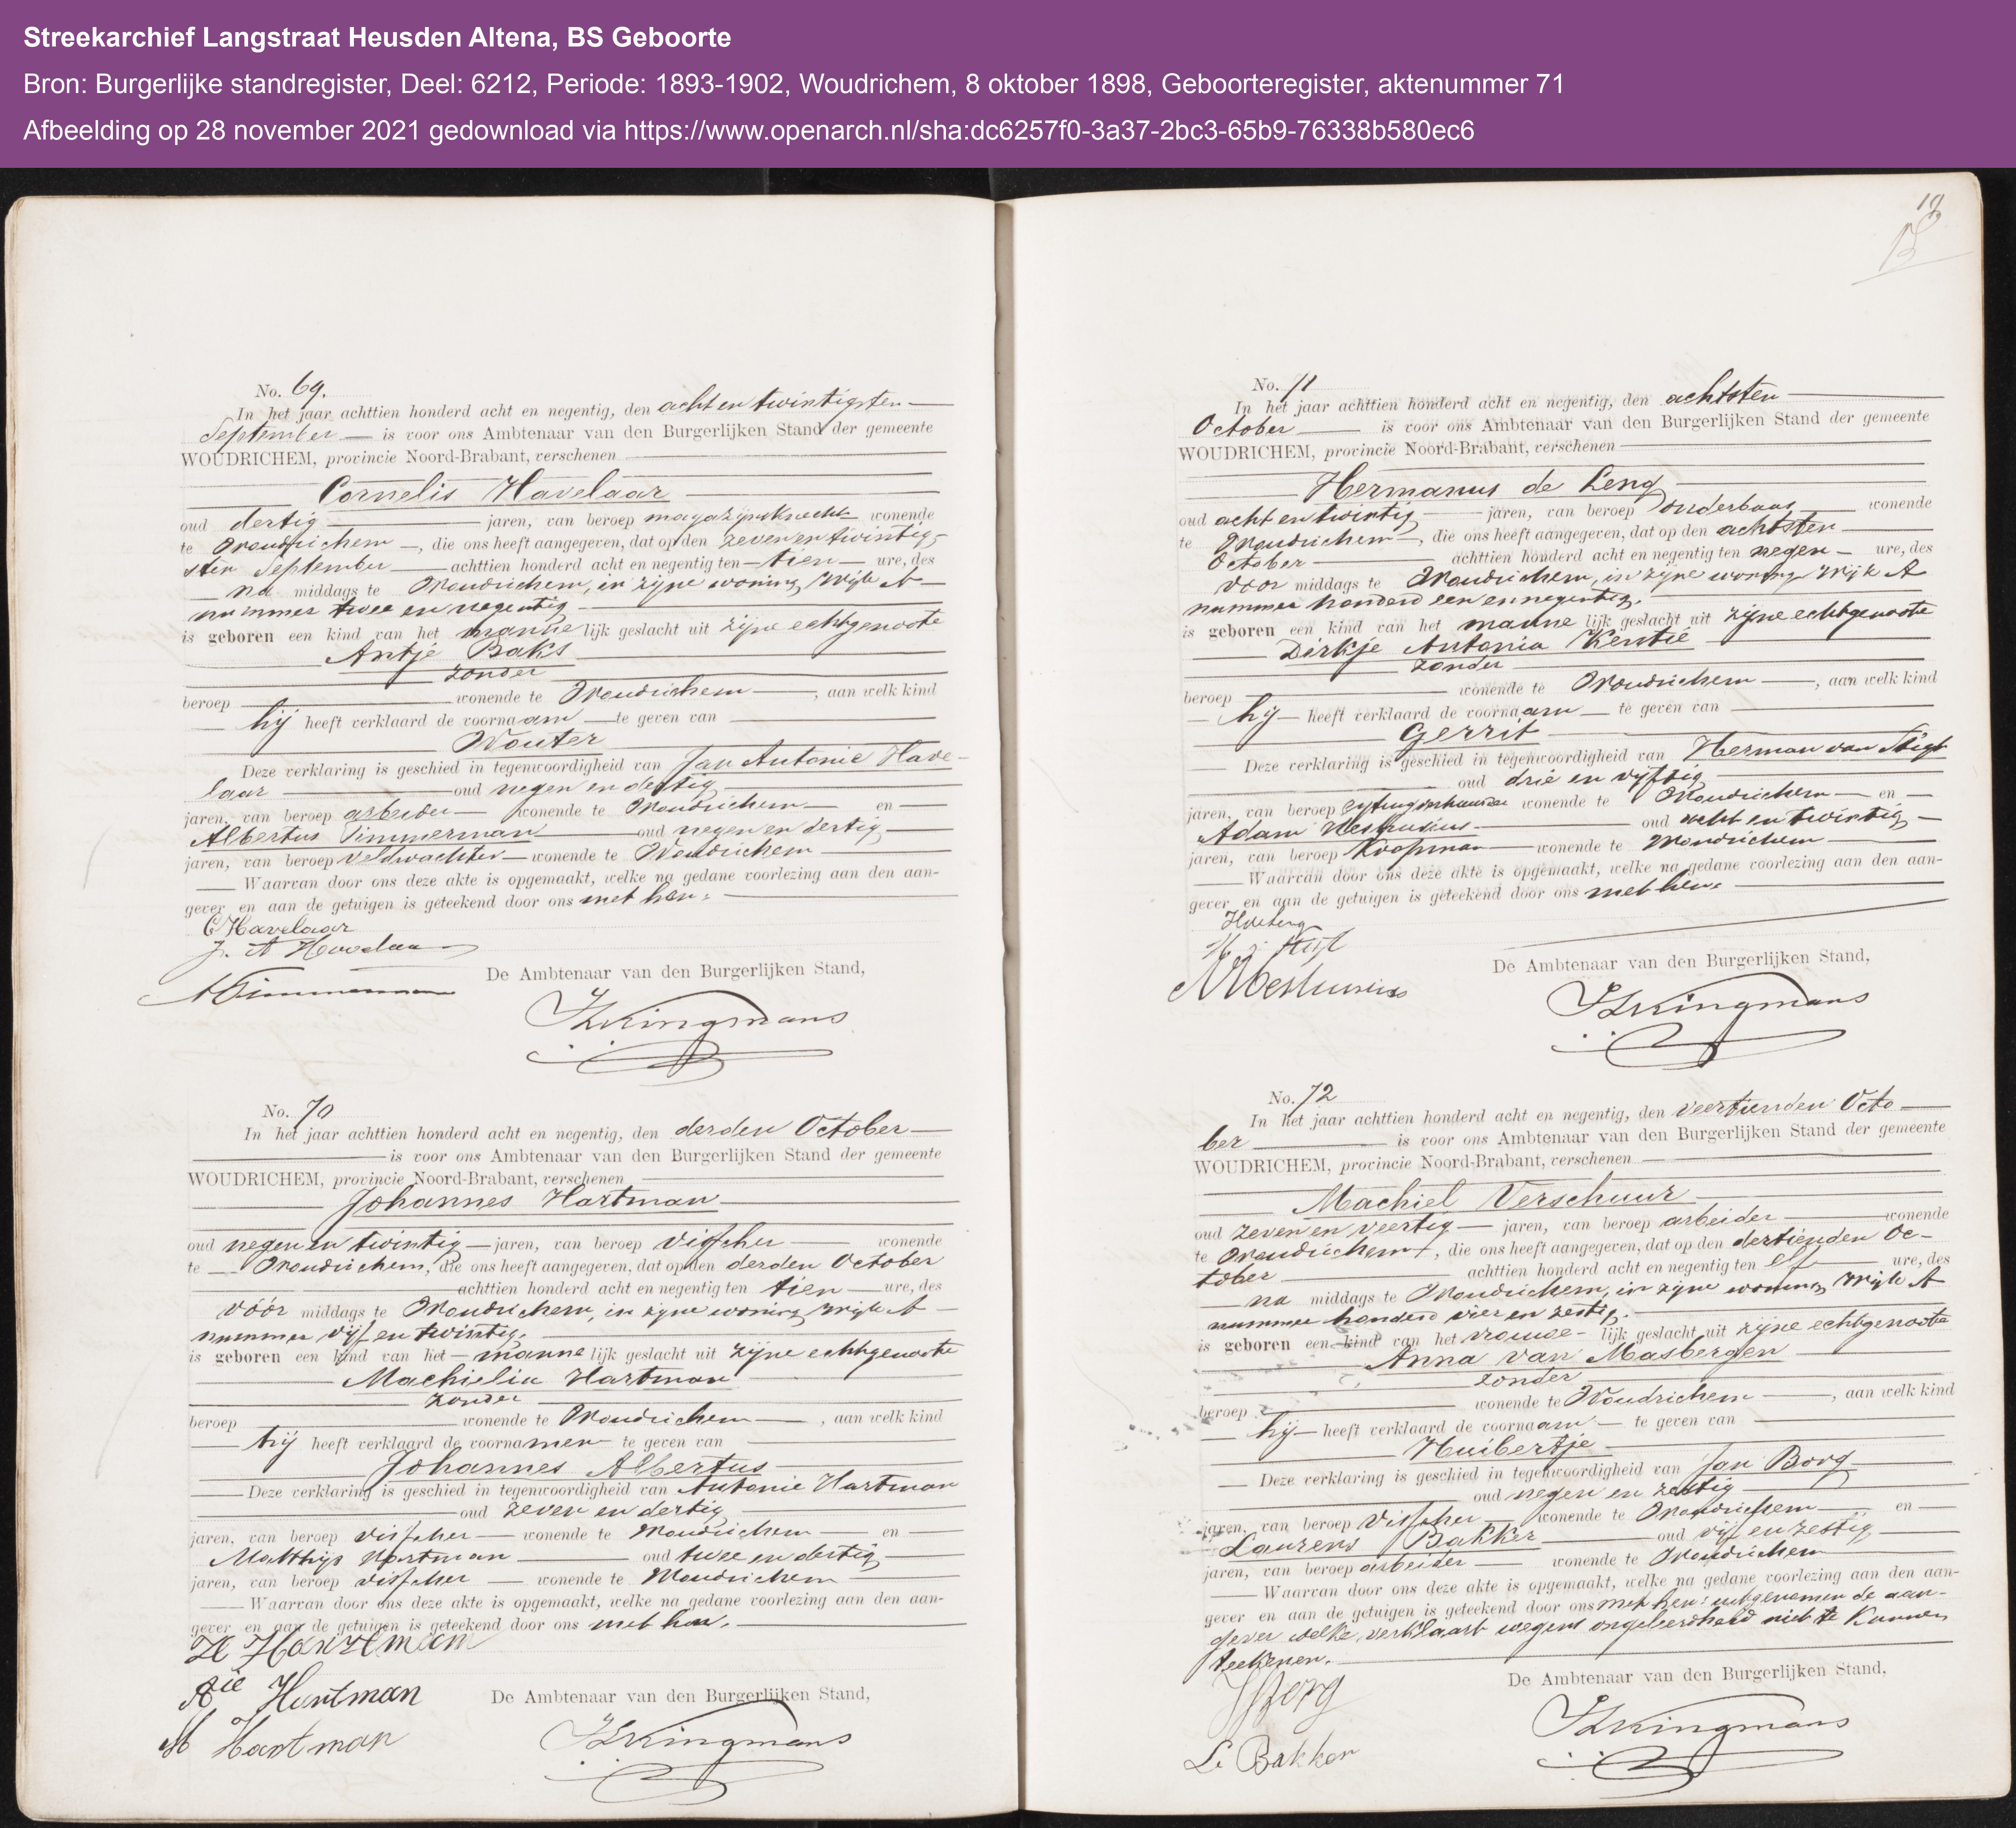 Streekarchief Langstraat Heusden Altena, BS Geboorte
Bron: Burgerlijke standregister, Deel: 6212, Periode: 1893-1902, Woudrichem, 8 oktober 1898, Geboorteregister, aktenummer 71
Afbeelding op 28 november 2021 gedownload via https://www.openarch.nl/sha:dc6257f0-3a37-2bc3-65b9-76338b580ec6
No. 69.
In het jaar achttien honderd acht en negentig, den acht en twintigsten
September is voor ons Ambtenaar van den Burgerlijken Stand der gemeente
WOUDRICHEM, provincie Noord-Brabant, verschenen
Cornelis Havelaar
oud dertig jaren, van beroep magazijnsknecht wonende
te Woudrichem, die ons heeft aangegeven, dat op den zeven en twintig-
sten September achttien honderd acht en negentig ten tien ure, des
na middags te Woudrichem, in zijne woning, wijk A
nummer twee en negentig
is geboren een kind van het mannelijk geslacht uit zijne echtgenoote
Antje Baks
zonder
beroep wonende te Woudrichem, aan welk kind
hij heeft verklaard de voornaam te geven van
Wouter
Deze verklaring is geschied in tegenwoordigheid van Jan Antonie Have-
laar oud negen en dertig
jaren, van beroep arbeider wonende te Woudrichem en
Albertus Timmerman oud negen en dertig
jaren, van beroep veldwachter wonende te Woudrichem
Waarvan door ons deze akte is opgemaakt, welke na gedane voorlezing aan den aan-
gever en aan de getuigen is geteekend door ons met hen.
C Havelaar
J. A Havelaar
A Timmerman
De Ambtenaar van den Burgerlijken Stand,
Kingmans
No. 70
In het jaar achttien honderd acht en negentig, den derden October
is voor ons Ambtenaar van den Burgerlijken Stand der gemeente
WOUDRICHEM, provincie Noord-Brabant, verschenen
Johannes Hartman
oud negen en twintig jaren, van beroep visscher wonende
te Woudrichem, die ons heeft aangegeven, dat op den derden October
achttien honderd acht en negentig ten tien ure, des
vóór middags te Woudrichem, in zijne woning, wijk A
nummer vijf en twintig.
is geboren een kind van het mannelijk geslacht uit zijne echtgenoote
Machielia Hartman
zonder
beroep wonende te Woudrichem, aan welk kind
hij heeft verklaard de voornamen te geven van
Johannes Albertus
Deze verklaring is geschied in tegenwoordigheid van Antonie Hartman
oud zeven en dertig
jaren, van beroep visscher wonende te Woudrichem en
Matthijs Hartman oud twee en dertig
jaren, van beroep visscher wonende te Woudrichem
Waarvan door ons deze akte is opgemaakt, welke na gedane voorlezing aan den aan-
gever en aan de getuigen is geteekend door ons met hen.
Hartman
Aie Hartman
M Hartman
De Ambtenaar van den Burgerlijken Stand,
Kingmans
19
No. 71
In het jaar achttien honderd acht en negentig, den achtsten
October is voor ons Ambtenaar van den Burgerlijken Stand der gemeente
WOUDRICHEM, provincie Noord-Brabant, verschenen
Hermanus de Leng
oud acht en twintig jaren, van beroep onderbaas wonende
te Woudrichem, die ons heeft aangegeven, dat op den achtsten
October achttien honderd acht en negentig ten negen ure, des
voor middags te Woudrichem, in zijne woning, wijk A
nummer honderd een en negentig.
is geboren een kind van het mannelijk geslacht uit zijne echtgenoote
Dirkje Antonia Kentie
zonder
beroep wonende te Woudrichem, aan welk kind
hij heeft verklaard de voornaam te geven van
Gerrit
Deze verklaring is geschied in tegenwoordigheid van Herman van
oud drie en vijftig
jaren, van beroep wonende te Woudrichem en
Adam oud acht en twintig
jaren, van beroep Koopman wonende te Woudrichem
Waarvan door ons deze akte is opgemaakt, welke na gedane voorlezing aan den aan-
gever en aan de getuigen is geteekend door ons met hen.
De Ambtenaar van den Burgerlijken Stand,
Kingmans
No. 72
In het jaar achttien honderd acht en negentig, den veertienden Octo
ber is voor ons Ambtenaar van den Burgerlijken Stand der gemeente
WOUDRICHEM, provincie Noord-Brabant, verschenen
Machiel Verschuur
oud zeven en veertig jaren, van beroep arbeider wonende
te Woudrichem, die ons heeft aangegeven, dat op den dertienden Oc-
tober achttien honderd acht en negentig ten elf ure, des
na middags te Woudrichem, in zijne woning, wijk A
nummer honderd vier en zestig.
is geboren een kind van het vrouwelijk geslacht uit zijne echtgenoote
Anna van Masbergen
zonder
beroep wonende te Woudrichem, aan welk kind
hij heeft verklaard de voornaam te geven van
Huibertje
Deze verklaring is geschied in tegenwoordigheid van Jan Borg
oud negen en zestig
jaren, van beroep visscher wonende te Woudrichem en
Laurens Bakker oud vijf en zestig
jaren, van beroep arbeider wonende te Woudrichem
Waarvan door ons deze akte is opgemaakt, welke na gedane voorlezing aan den aan-
gever en aan de getuigen is geteekend door ons met hen: uitgenomen de aan-
gever welke verklaart wegens ongeleerdheid niet te kunnen
teekenen.
J Borg
L. Bakker
De Ambtenaar van den Burgerlijken Stand,
Kingmans